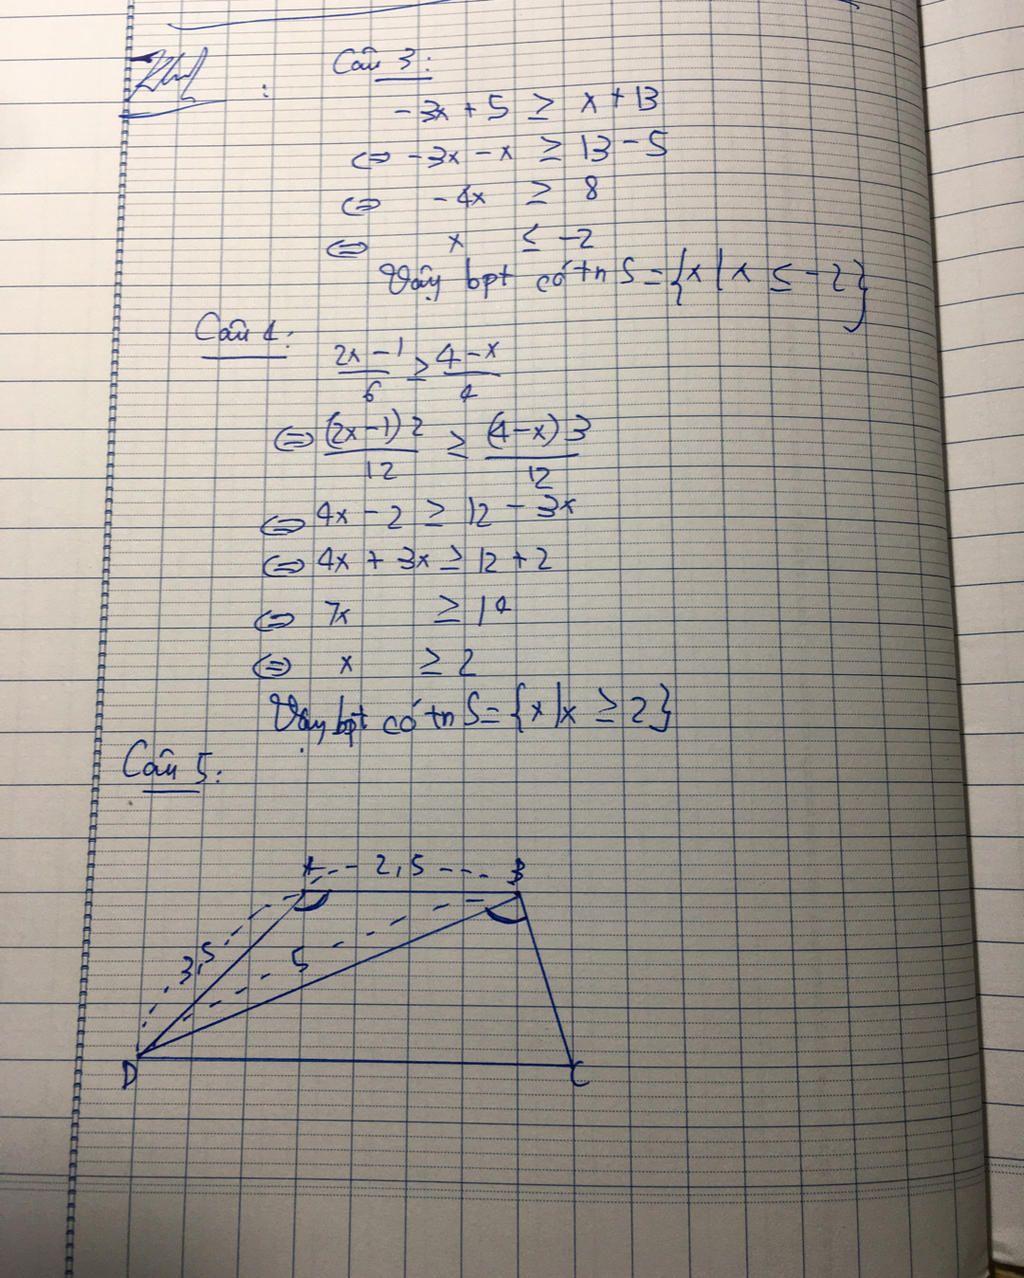 Câu 3:
-3x + 5 ≥ x + 13
⇔ -3x - x ≥ 13 - 5
⇔ -4x ≥ 8
⇔ x ≤ -2
Vậy bpt có tn S = {x | x ≤ -2}
Câu 4:
(2x - 1)/6 ≥ (4 - x)/4
⇔ (2x - 1) 2/12 ≥ (4 - x) 3/12
⇔ 4x - 2 ≥ 12 - 3x
⇔ 4x + 3x ≥ 12 + 2
⇔ 7x ≥ 14
⇔ x ≥ 2
Vậy bpt có tn S = {x | x ≥ 2}
Câu 5:
A 2,5 B
3,5 5
D C